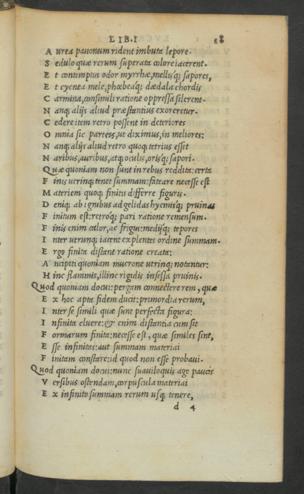 LIB. I
A urea pauonum rident imbuta lepore.
S edulo quæ rerum superata colore iacerent.
E t contemptus odor myrrhæ, mellisq; sapores,
E t cycnea mele, phœbeaq; dædala chordis
C armina, consimili ratione oppressa silerent.
N anq; alijs aliud præstantius exoreretur.
C edere item retro possent in deteriores
O mnia sic partes, ut diximus, in meliores:
N anq; alijs aliud retro quoq; tetrius esset
N aribus, auribus, atq; oculis, orisq; sapori.
Quæ quoniam non sunt in rebus reddita: certa
F inis utrinq; tenet summam: fateare necesse est
M ateriem quoq; finitis differre figuris.
D eniq; ab ignibus ad gelidas hyemisq; pruinas
F initum est: retroq; pari ratione remensum.
F inis enim calor, ac frigus: mediiq; tepores
I nter utrunq; iacent explentes ordine summam.
E rgo finita distant ratione creata;
A ncipiti quoniam mucrone utrinq; notentur:
H inc flammis, illinc rigidis infessa pruinis.
Quod quoniam docui: pergam connectere rem, quæ
E x hoc apta fidem ducit: primordia rerum,
I nter se simili quæ sunt perfecta figura:
I nfinita cluere: etenim distantia cum sit
F ormarum finita: necesse est, quæ similes sint,
E sse infinitas: aut summam materiai
F initam constare: id quod non esse probaui.
Quod quoniam docui: nunc suauiloquis age paucis
V ersibus ostendam, corpuscula materiai
E x infinito summam rerum usq; tenere,
d 4